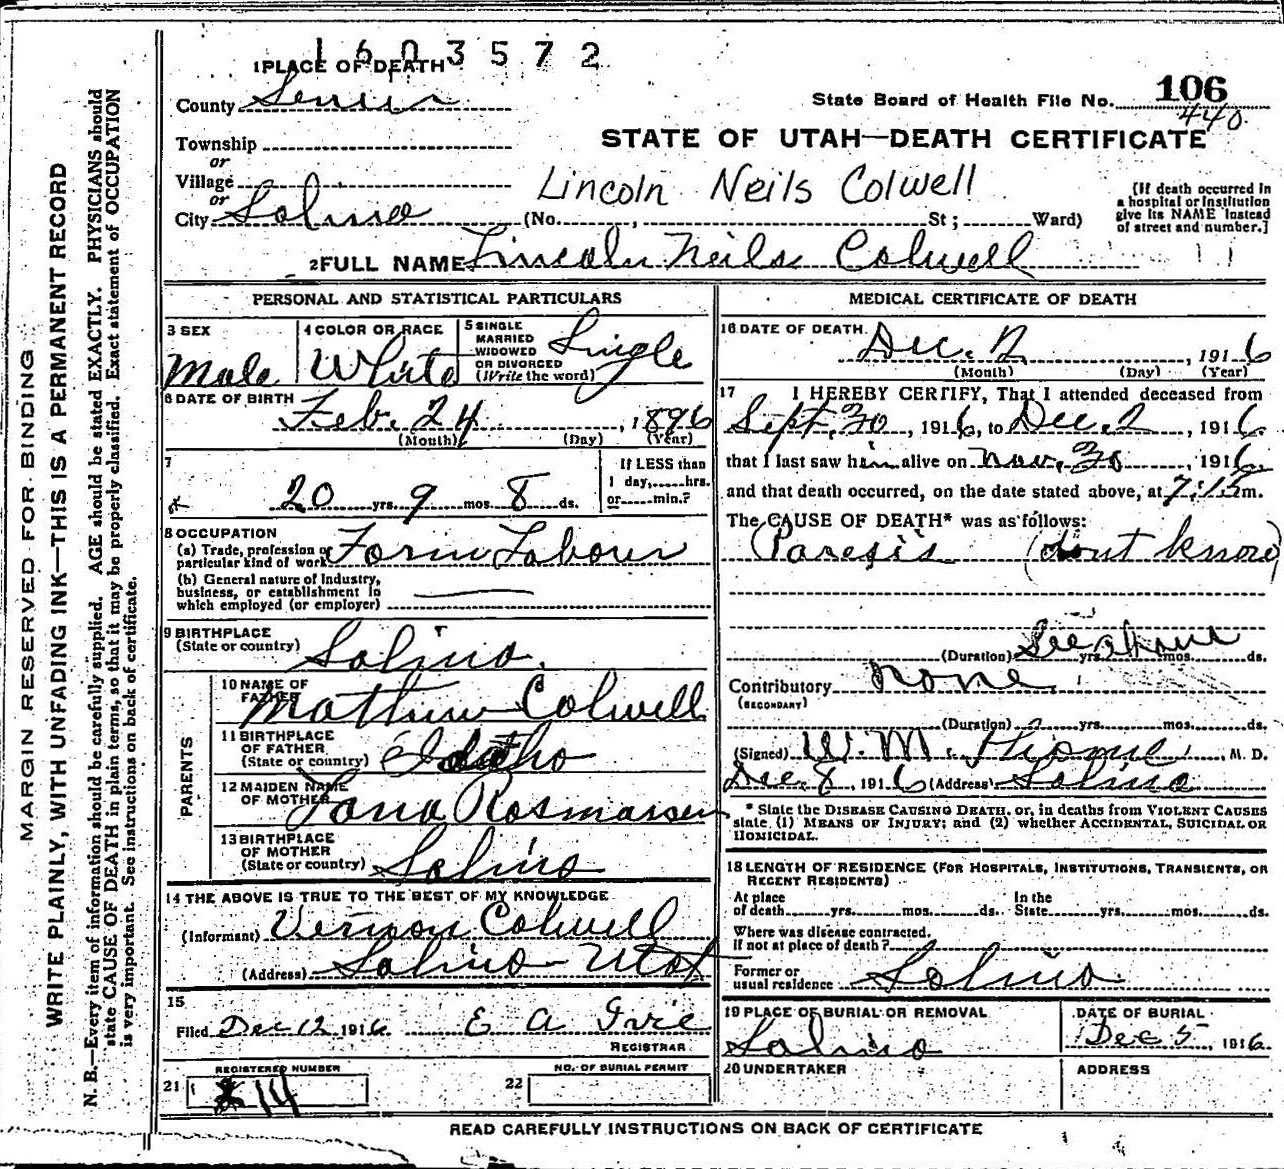 1603572
1 PLACE OF DEATH
County Sevier
State Board of Health File No. 106
440
Township
or
Village
or
City Salina
STATE OF UTAH—DEATH CERTIFICATE
Lincoln Neils Colwell
(No. , St ; Ward)
[If death occurred in
a hospital or institution
give its NAME instead
of street and number.]
2 FULL NAME Lincoln Neils Colwell
PERSONAL AND STATISTICAL PARTICULARS
3 SEX
Male
4 COLOR OR RACE
White
5 SINGLE
MARRIED
WIDOWED
OR DIVORCED
(Write the word)
Single
6 DATE OF BIRTH
Feb. 24, 1896
(Month) (Day) (Year)
7
20 yrs. 9 mos. 8 ds.
If LESS than
1 day, hrs.
or min.?
8 OCCUPATION
(a) Trade, profession or
particular kind of work Farm Labour
(b) General nature of Industry,
business, or establishment in
which employed (or employer)
9 BIRTHPLACE
(State or country) Salina.
PARENTS
10 NAME OF
FATHER Mathew Colwell
11 BIRTHPLACE
OF FATHER
(State or country) Idaho
12 MAIDEN NAME
OF MOTHER Rosmassen
13 BIRTHPLACE
OF MOTHER
(State or country) Salina
14 THE ABOVE IS TRUE TO THE BEST OF MY KNOWLEDGE
(Informant) Vernon Colwell
(Address) Salina - Utah
15
Filed Dec 12 1916 E A Ivie
REGISTRAR
REGISTERED NUMBER
21 14
NO. OF BURIAL PERMIT
22
MEDICAL CERTIFICATE OF DEATH
16 DATE OF DEATH.
Dec. 2, 1916
(Month) (Day) (Year)
17 I HEREBY CERTIFY, That I attended deceased from
Sept. 30, 1916, to Dec. 2, 1916.
that I last saw him alive on Nov. 30, 1916
and that death occurred, on the date stated above, at 7:15 m.
The CAUSE OF DEATH* was as follows:
Paresis (dont know)
(Duration) See above yrs. mos. ds.
Contributory none
(SECONDARY)
(Duration) yrs. mos. ds.
(Signed) W. M. , M. D.
Dec. 8, 1916 (Address) Salina
* State the DISEASE CAUSING DEATH, or, in deaths from VIOLENT CAUSES
state (1) MEANS OF INJURY; and (2) whether ACCIDENTAL, SUICIDAL OR
HOMICIDAL.
18 LENGTH OF RESIDENCE (FOR HOSPITALS, INSTITUTIONS, TRANSIENTS, OR
RECENT RESIDENTS)
At place
of death yrs. mos. ds.
In the
State yrs. mos. ds.
Where was disease contracted.
if not at place of death?
Former or
usual residence Salina
19 PLACE OF BURIAL OR REMOVAL
Salina
DATE OF BURIAL
Dec 5, 1916.
20 UNDERTAKER
ADDRESS
READ CAREFULLY INSTRUCTIONS ON BACK OF CERTIFICATE
MARGIN RESERVED FOR BINDING
WRITE PLAINLY, WITH UNFADING INK—THIS IS A PERMANENT RECORD
N. B.—Every item of information should be carefully supplied. AGE should be stated EXACTLY. PHYSICIANS should
state CAUSE OF DEATH in plain terms, so that it may be properly classified. Exact statement of OCCUPATION
is very important. See instructions on back of certificate.